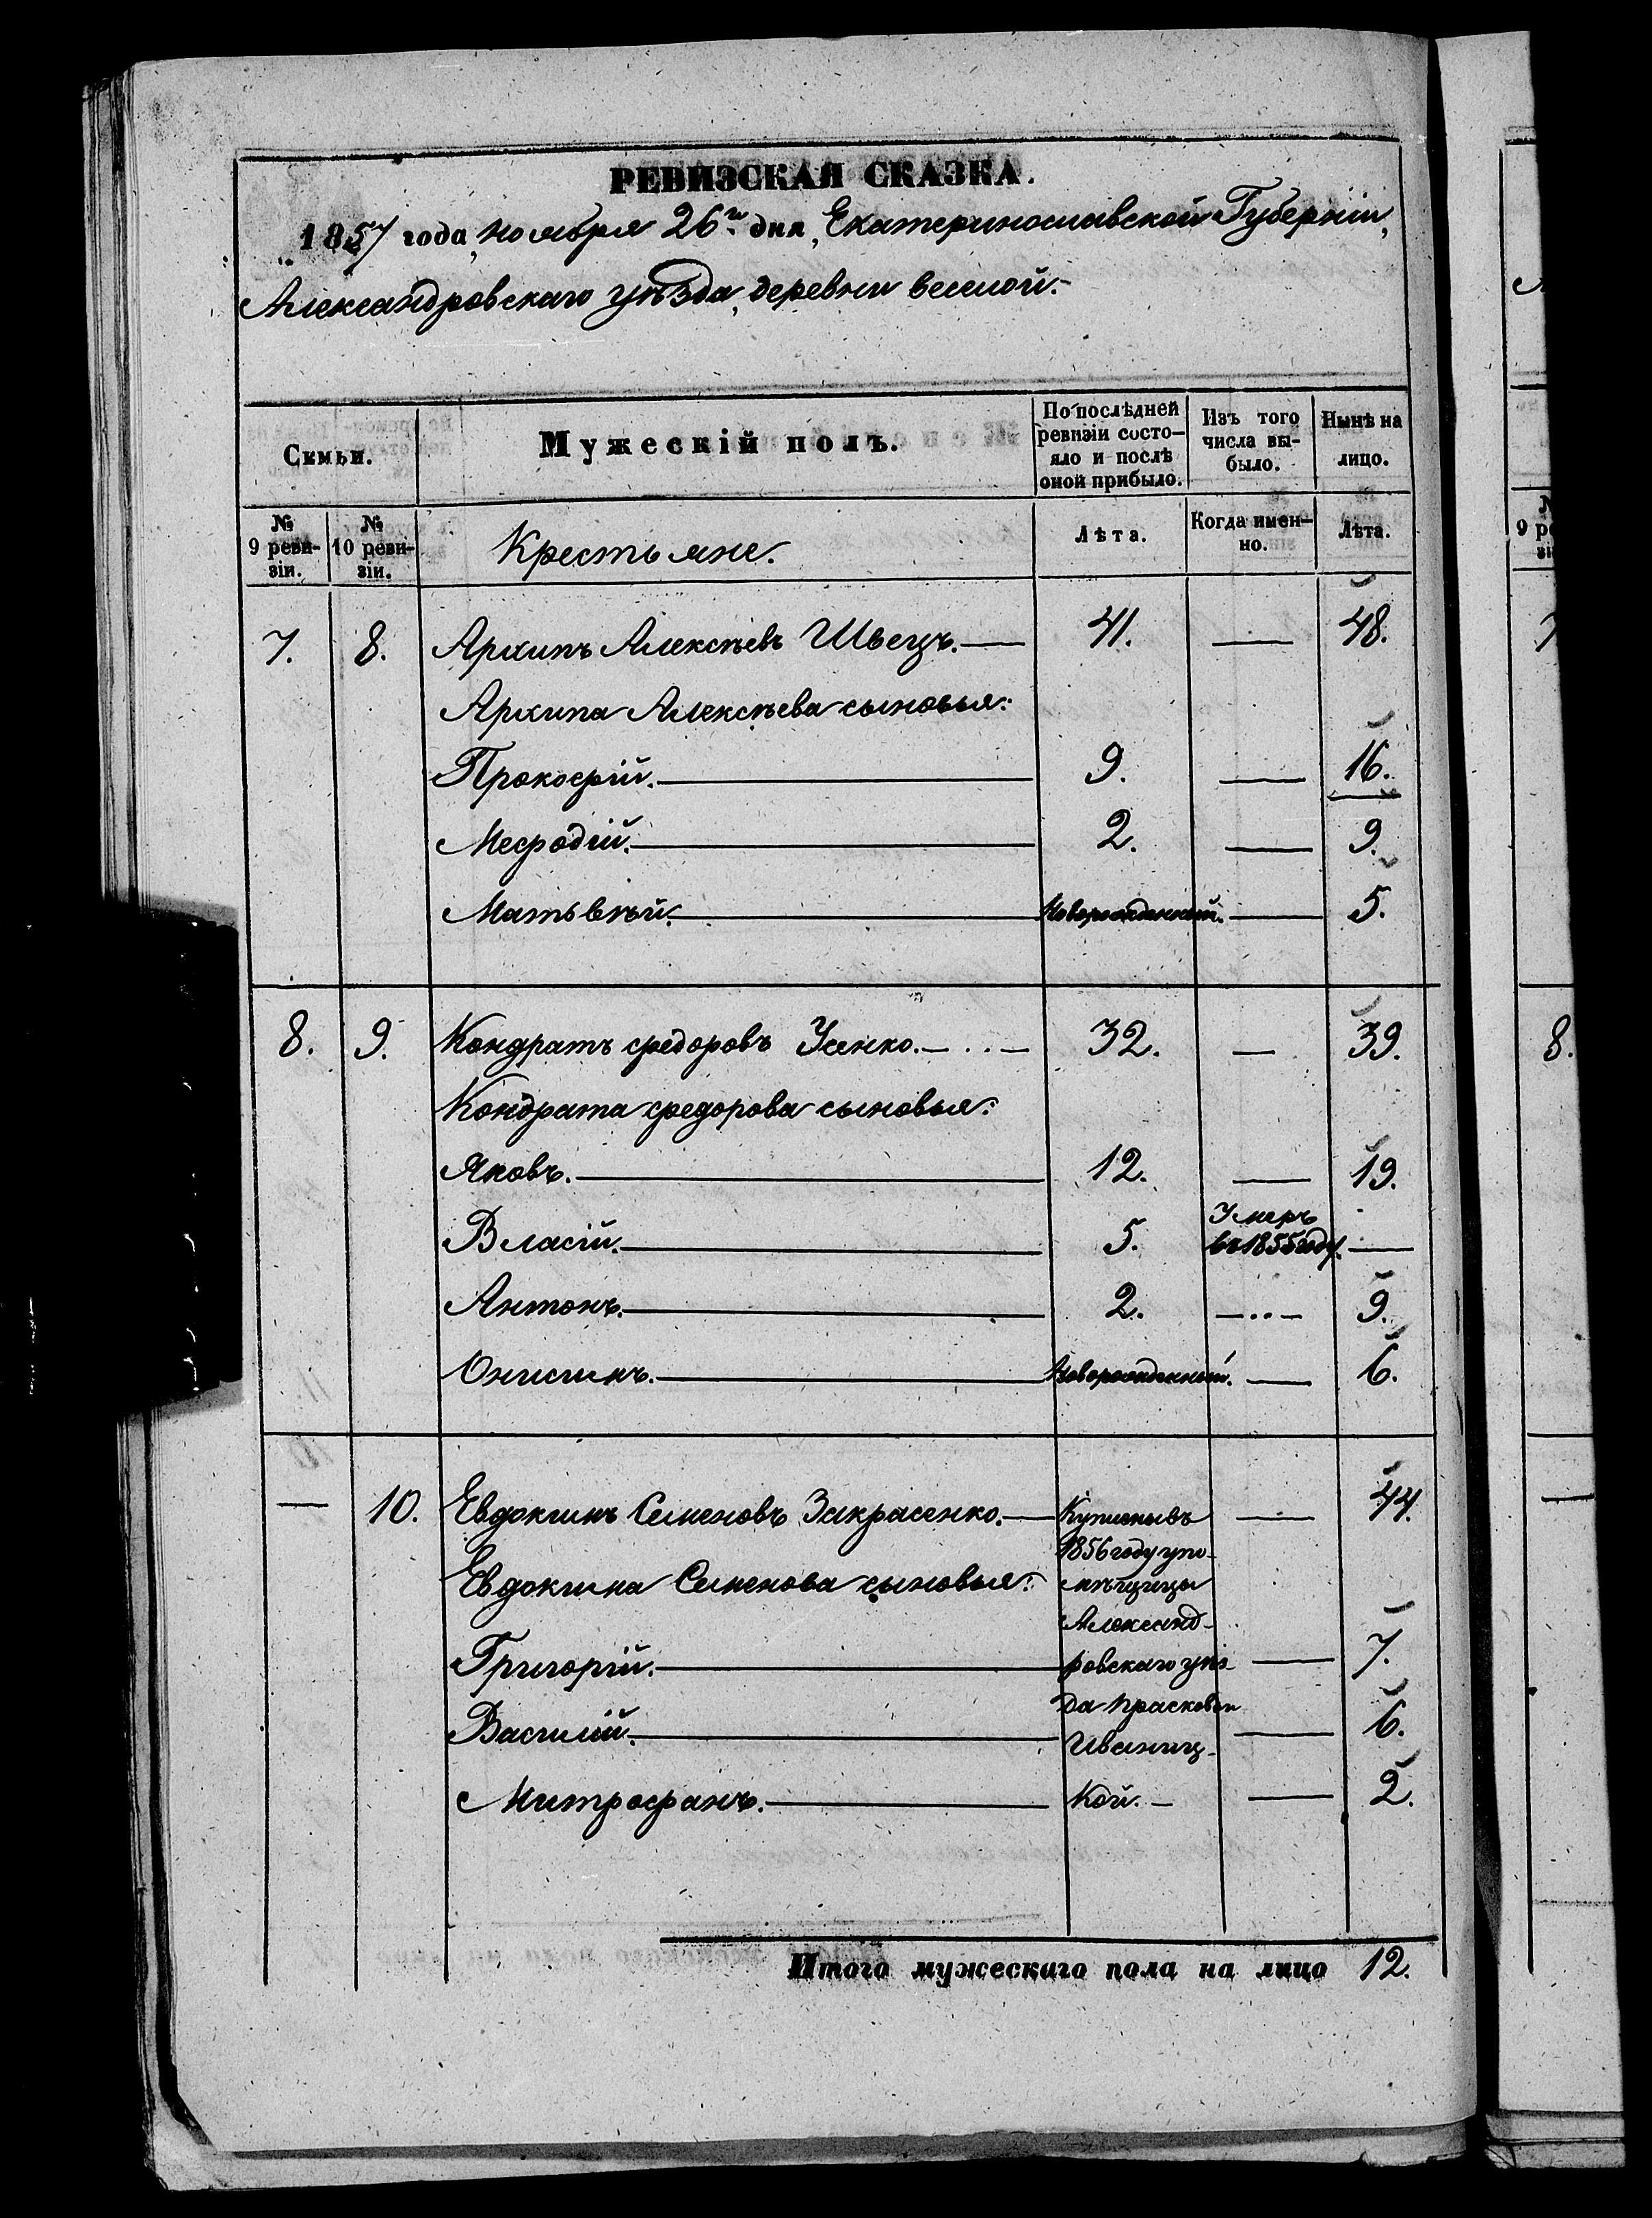 РЕВИЗСКАЯ СКАЗКА.
1857 года, ноября 26го дня, Екатеринославской Губерніи,
Александровскаго уѣзда, деревни Веселой.
Семьи. Мужескій полъ. По послѣдней ревизіи состояло и послѣ оной прибыло. Изъ того числа выбыло. Нынѣ на лицо.
№ 9 ревизіи. № 10 ревизіи. Крестьяне. Лѣта. Когда именно. Лѣта.
7. 8. Архипъ Алексѣевъ Швецъ.— 41. — 48.
Архипа Алексѣева сыновья:
Прокофій.— 9. — 16.
Мефодій.— 2. — 9.
Матьвѣй.— Новорожденный. — 5.
8. 9. Кондратъ Федоровъ Усенко.—..— 32. — 39.
Кондрата Федорова сыновья:
Яковъ.— 12. — 19.
Власій.— 5. Умеръ въ 1855 году. —
Антонъ.— 2. —..— 9.
Онисимъ.— Новорожденный. — 6.
— 10. Евдокимъ Семеновъ Закрасенко.— Купленъ въ — 44.
1856 году у по-
Евдокима Семенова сыновья: мѣщицы
Александ-
Григорій.— ровскаго уѣз- — 7.
да Прасковьи
Василій.— Иваниц- — 6.
Митрофанъ.— кой.— — 2.
Итого мужескаго пола на лицо 12.
8.